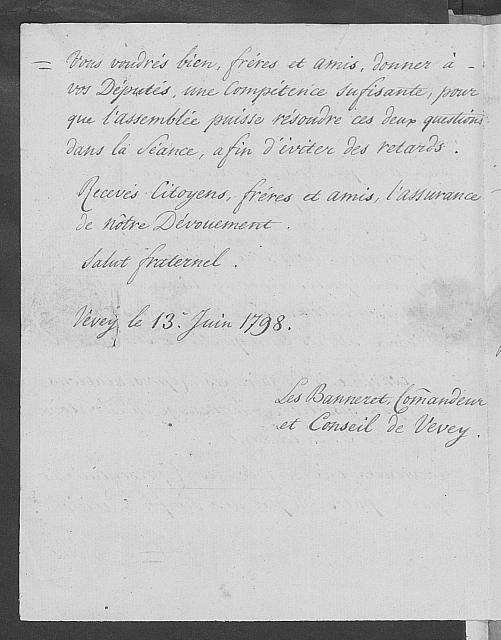 = Vous voudrés bien, fréres et amis, donner à -
vos Députés, une Compétence sufisante, pour
que l'assemblée puisse résoudre ces deux questions
dans la Séance, afin d'éviter des retards.
Recevés Citoyens, fréres et amis, l'assurance
de nôtre Dévouement.
Salut fraternel.
Vevey le 13. Juin 1798.
Les Banneret, Com̃andeur
et Conseil de Vevey.